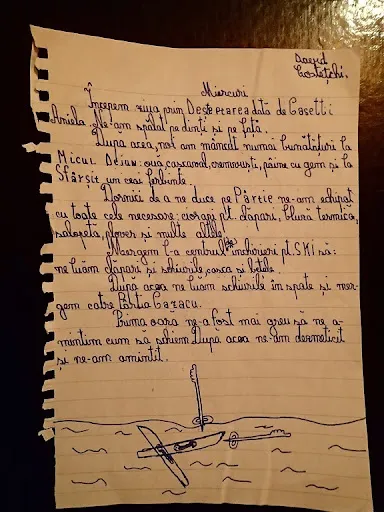 David
Costețchi.
Miercuri
Începem ziua prin Desteptarea dată de Casetti
Aniela. Ne-am spălat pe dinți și pe față.
După acea, noi am mâncat numai bunătățuri la
Micul Dejun: ouă cascaval, cremvuști, pâine cu gem și la
Sfârșit un ceai fierbinte.
Dornici de a ne duce pe Pârtie ne-am echipat
cu toate cele necesare: ciorapi pt. clăpari, bluză termică,
salopetă, plover și multe altele.
Mergem l-a centrul de închirieri pt. SKI să
ne luăm clăpari și schiurile, casca și betele.
După acea ne luăm schiurile în spate și mer-
gem catre Pârtia Cazacu.
Prima oară ne-a fost mai greu să ne a-
mintim cum să schiem. După acea ne-am dezmeticit
și ne-am amintit.